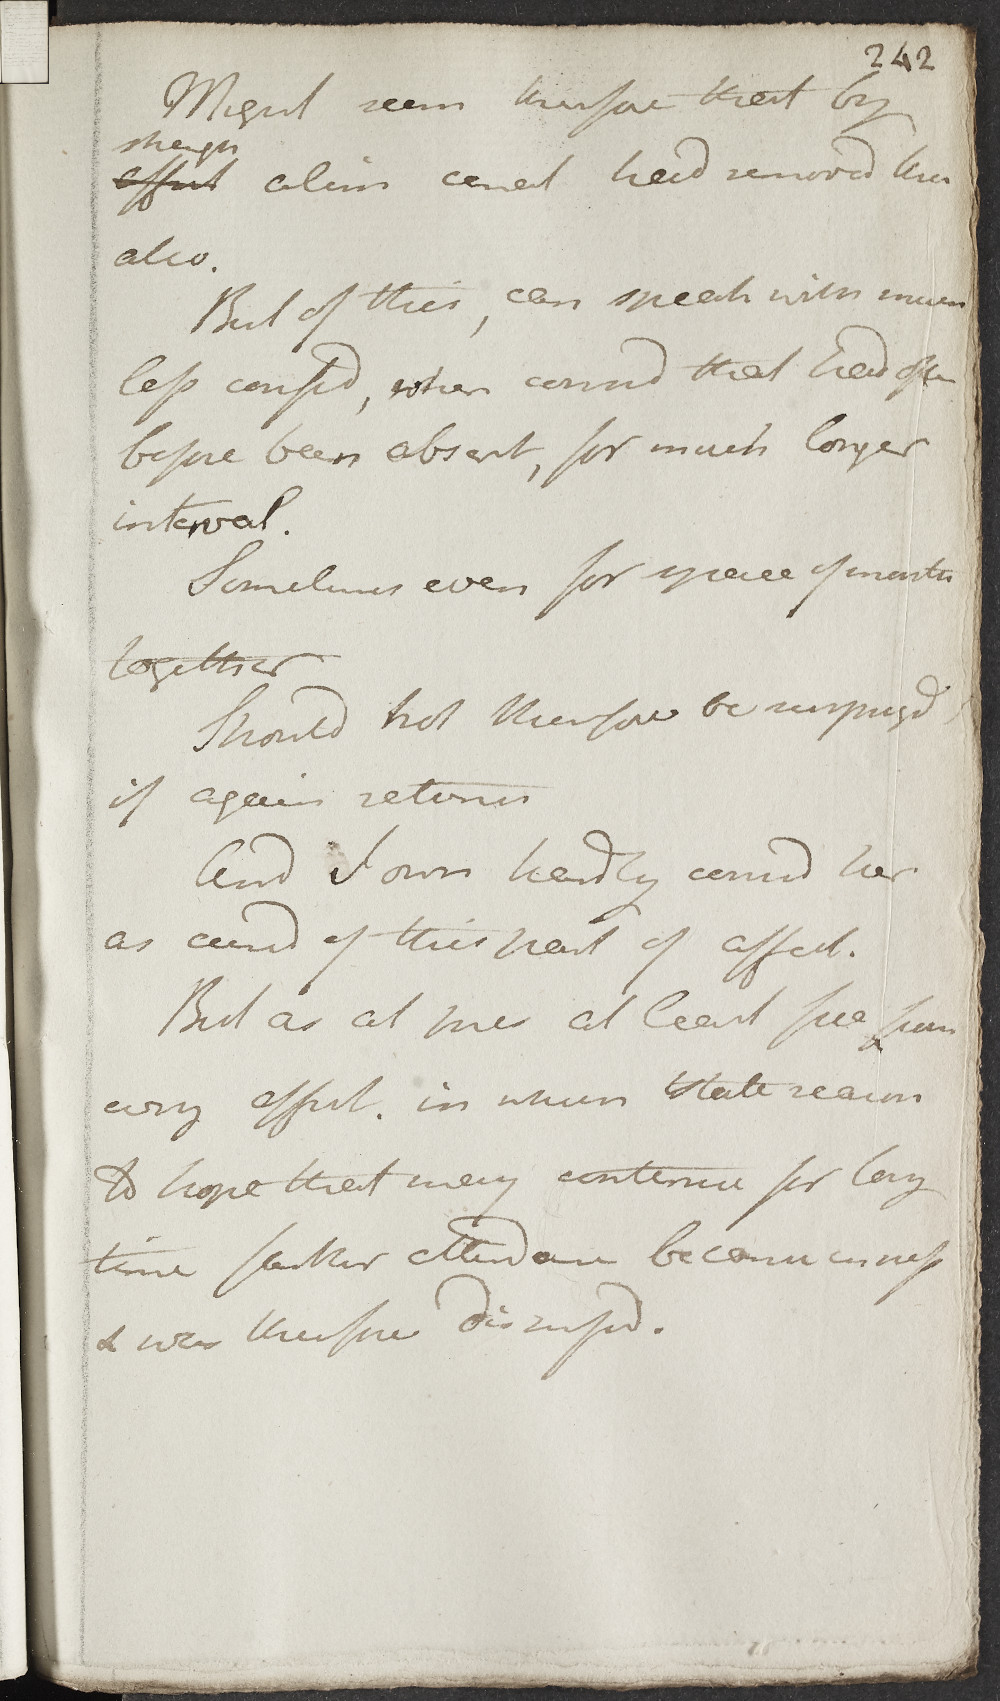 242
Might seem therefore that by
affect alim canal had removed this
also.
But of this, can speak with much
less confid, when consid that had often
before been absent, for much longer
interval.
Sometimes even for space of months
together
Should not therefore be surprised
if again returns
And I own hardly consid her
as cured of this part of affect.
But as at pres at least free from
every affect. in which state reason
to hope that may continue for long
time farther attendance became unness
& was therefore dismissd.